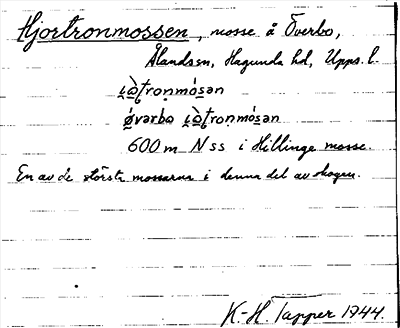 Hjortronmossen, mosse å Överbo,
Ålandssn, Hagunda hd, Upps. l.
i̯ò̱ʈroṇmó̱sən
ǿ̱vərbo i̯ò̱ʈroṇmó̱sən
600 m N ss i Hillinge mosse.
En av de största mossarna i denna del av skogen.
K-H. Tapper 1944.